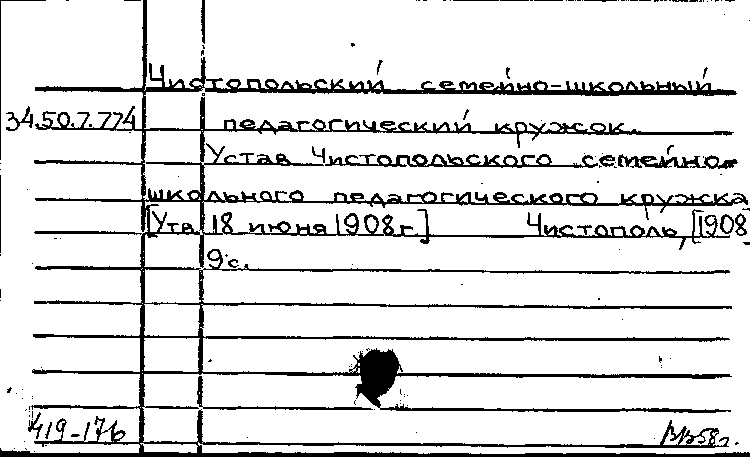 Чистопольский семейно-школьный
34.50.7.774 педагогический кружок.
Устав Чистопольского семейно-
школьного педагогического кружка
[Утв. 18 июня 1908 г.] Чистополь, [1908
9 с.
419-176